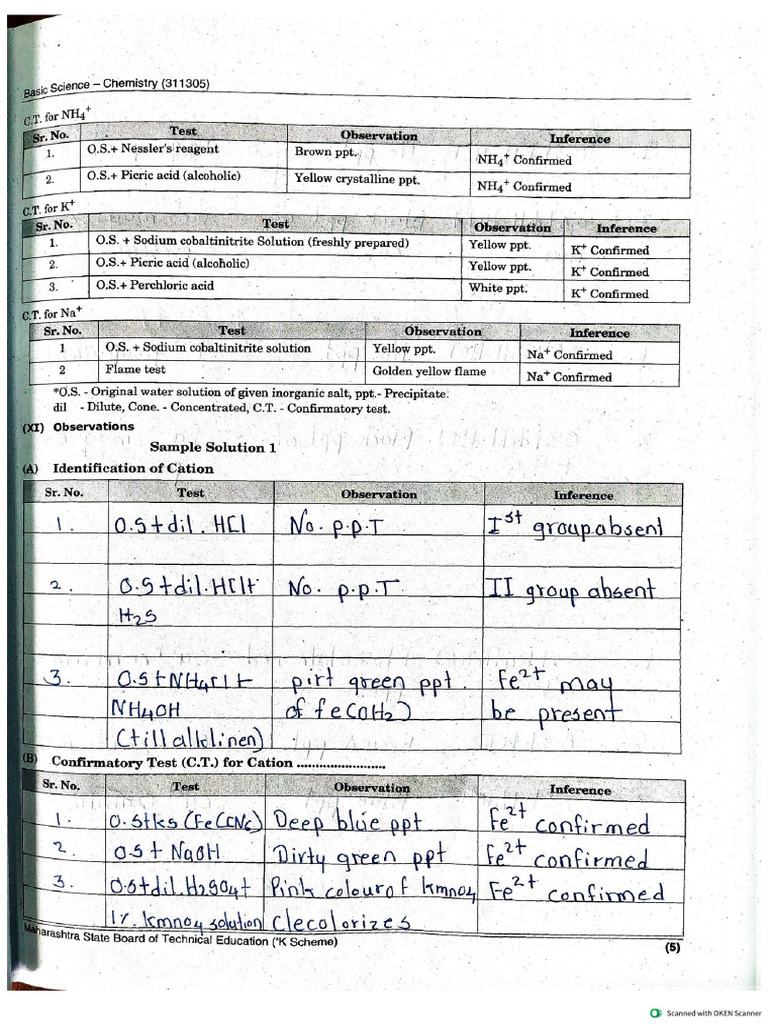 Basic Science – Chemistry (311305)
C.T. for NH4+
Sr. No. Test Observation Inference
1. O.S.+ Nessler's reagent Brown ppt. NH4+ Confirmed
2. O.S.+ Picric acid (alcoholic) Yellow crystalline ppt. NH4+ Confirmed
C.T. for K+
Sr. No. Test Observation Inference
1. O.S. + Sodium cobaltinitrite Solution (freshly prepared) Yellow ppt. K+ Confirmed
2. O.S.+ Picric acid (alcoholic) Yellow ppt. K+ Confirmed
3. O.S.+ Perchloric acid White ppt. K+ Confirmed
C.T. for Na+
Sr. No. Test Observation Inference
1 O.S. + Sodium cobaltinitrite solution Yellow ppt. Na+ Confirmed
2 Flame test Golden yellow flame Na+ Confirmed
*O.S. - Original water solution of given inorganic salt, ppt.- Precipitate.
dil - Dilute, Cone. - Concentrated, C.T. - Confirmatory test.
(XI) Observations
Sample Solution 1
(A) Identification of Cation
Sr. No. Test Observation Inference
1. O.S+dil. HCl No. p.p.T Ist group absent
2. O.S+dil.HCl+ No. p.p.T II group absent
H2S
3. O.S+NH4Cl+ pirt green ppt. Fe2+ may
NH4OH of fe(OH2) be present
(till alklinen)
(B) Confirmatory Test (C.T.) for Cation ........................
Sr. No. Test Observation Inference
1. O.S+k3(Fe(CN6) Deep blue ppt Fe2+ confirmed
2. O.S+ NaOH Dirty green ppt Fe2+ confirmed
3. O.S+dil.H2SO4+ Pink colour of kmno4 Fe2+ confirmed
1%. kmno4 solution Clecolorizes
Maharashtra State Board of Technical Education ('K Scheme) (5)
Scanned with OKEN Scanner